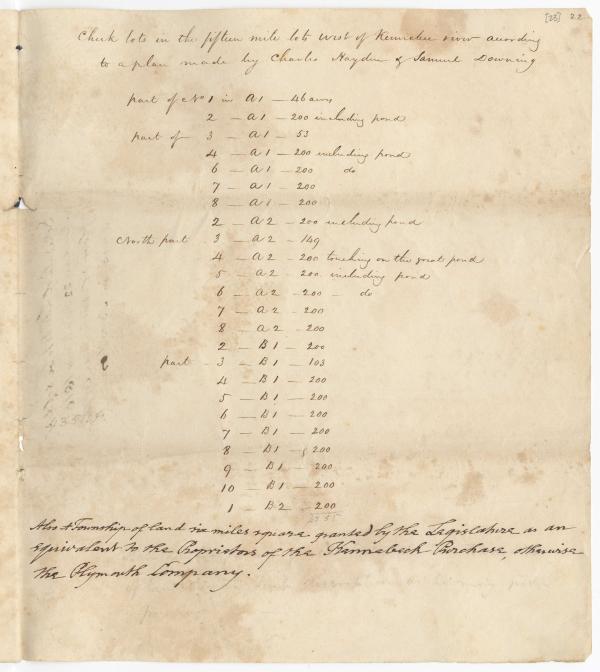 [23] 22
Check lots in the fifteen mile lots West of Kennebec river according
to a plan made by Charles Hayden & Samuel Downing
part of No 1 in A 1 — 46 acres
2 — A 1 — 200 including pond
part of 3 — A 1 — 53
4 — A 1 — 200 including pond
6 — A 1 — 200 do
7 — A 1 — 200
8 — A 1 — 200
2 — A 2 — 200 including pond
North part 3 — A 2 — 149
4 — A 2 — 200 touching on the great pond
5 — A 2 — 200 including pond
6 — A 2 — 200 — do
7 — A 2 — 200
8 — A 2 — 200
2 — B 1 — 200
part — 3 — B 1 — 103
4 — B 1 — 200
5 — B 1 — 200
6 — B 1 — 200
7 — B 1 — 200
8 — B 1 — 200
9 — B 1 — 200
10 — B 1 — 200
1 — B 2 — 200
Also a Township of land six miles square granted by the Legislature as an
equivalent to the Proprietors of the Kennebeck Purchase, otherwise
the Plymouth Company.